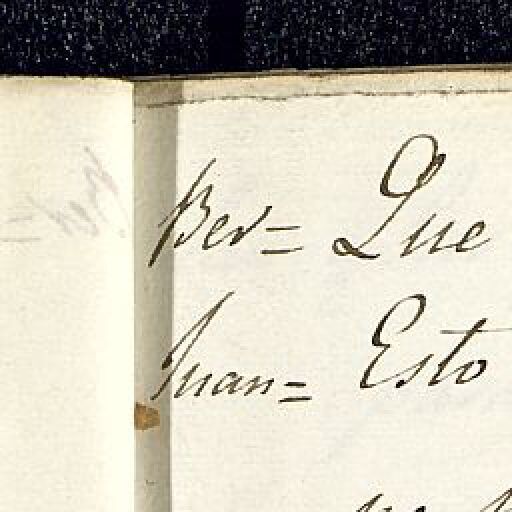 Ber= Que
Juan= Esto